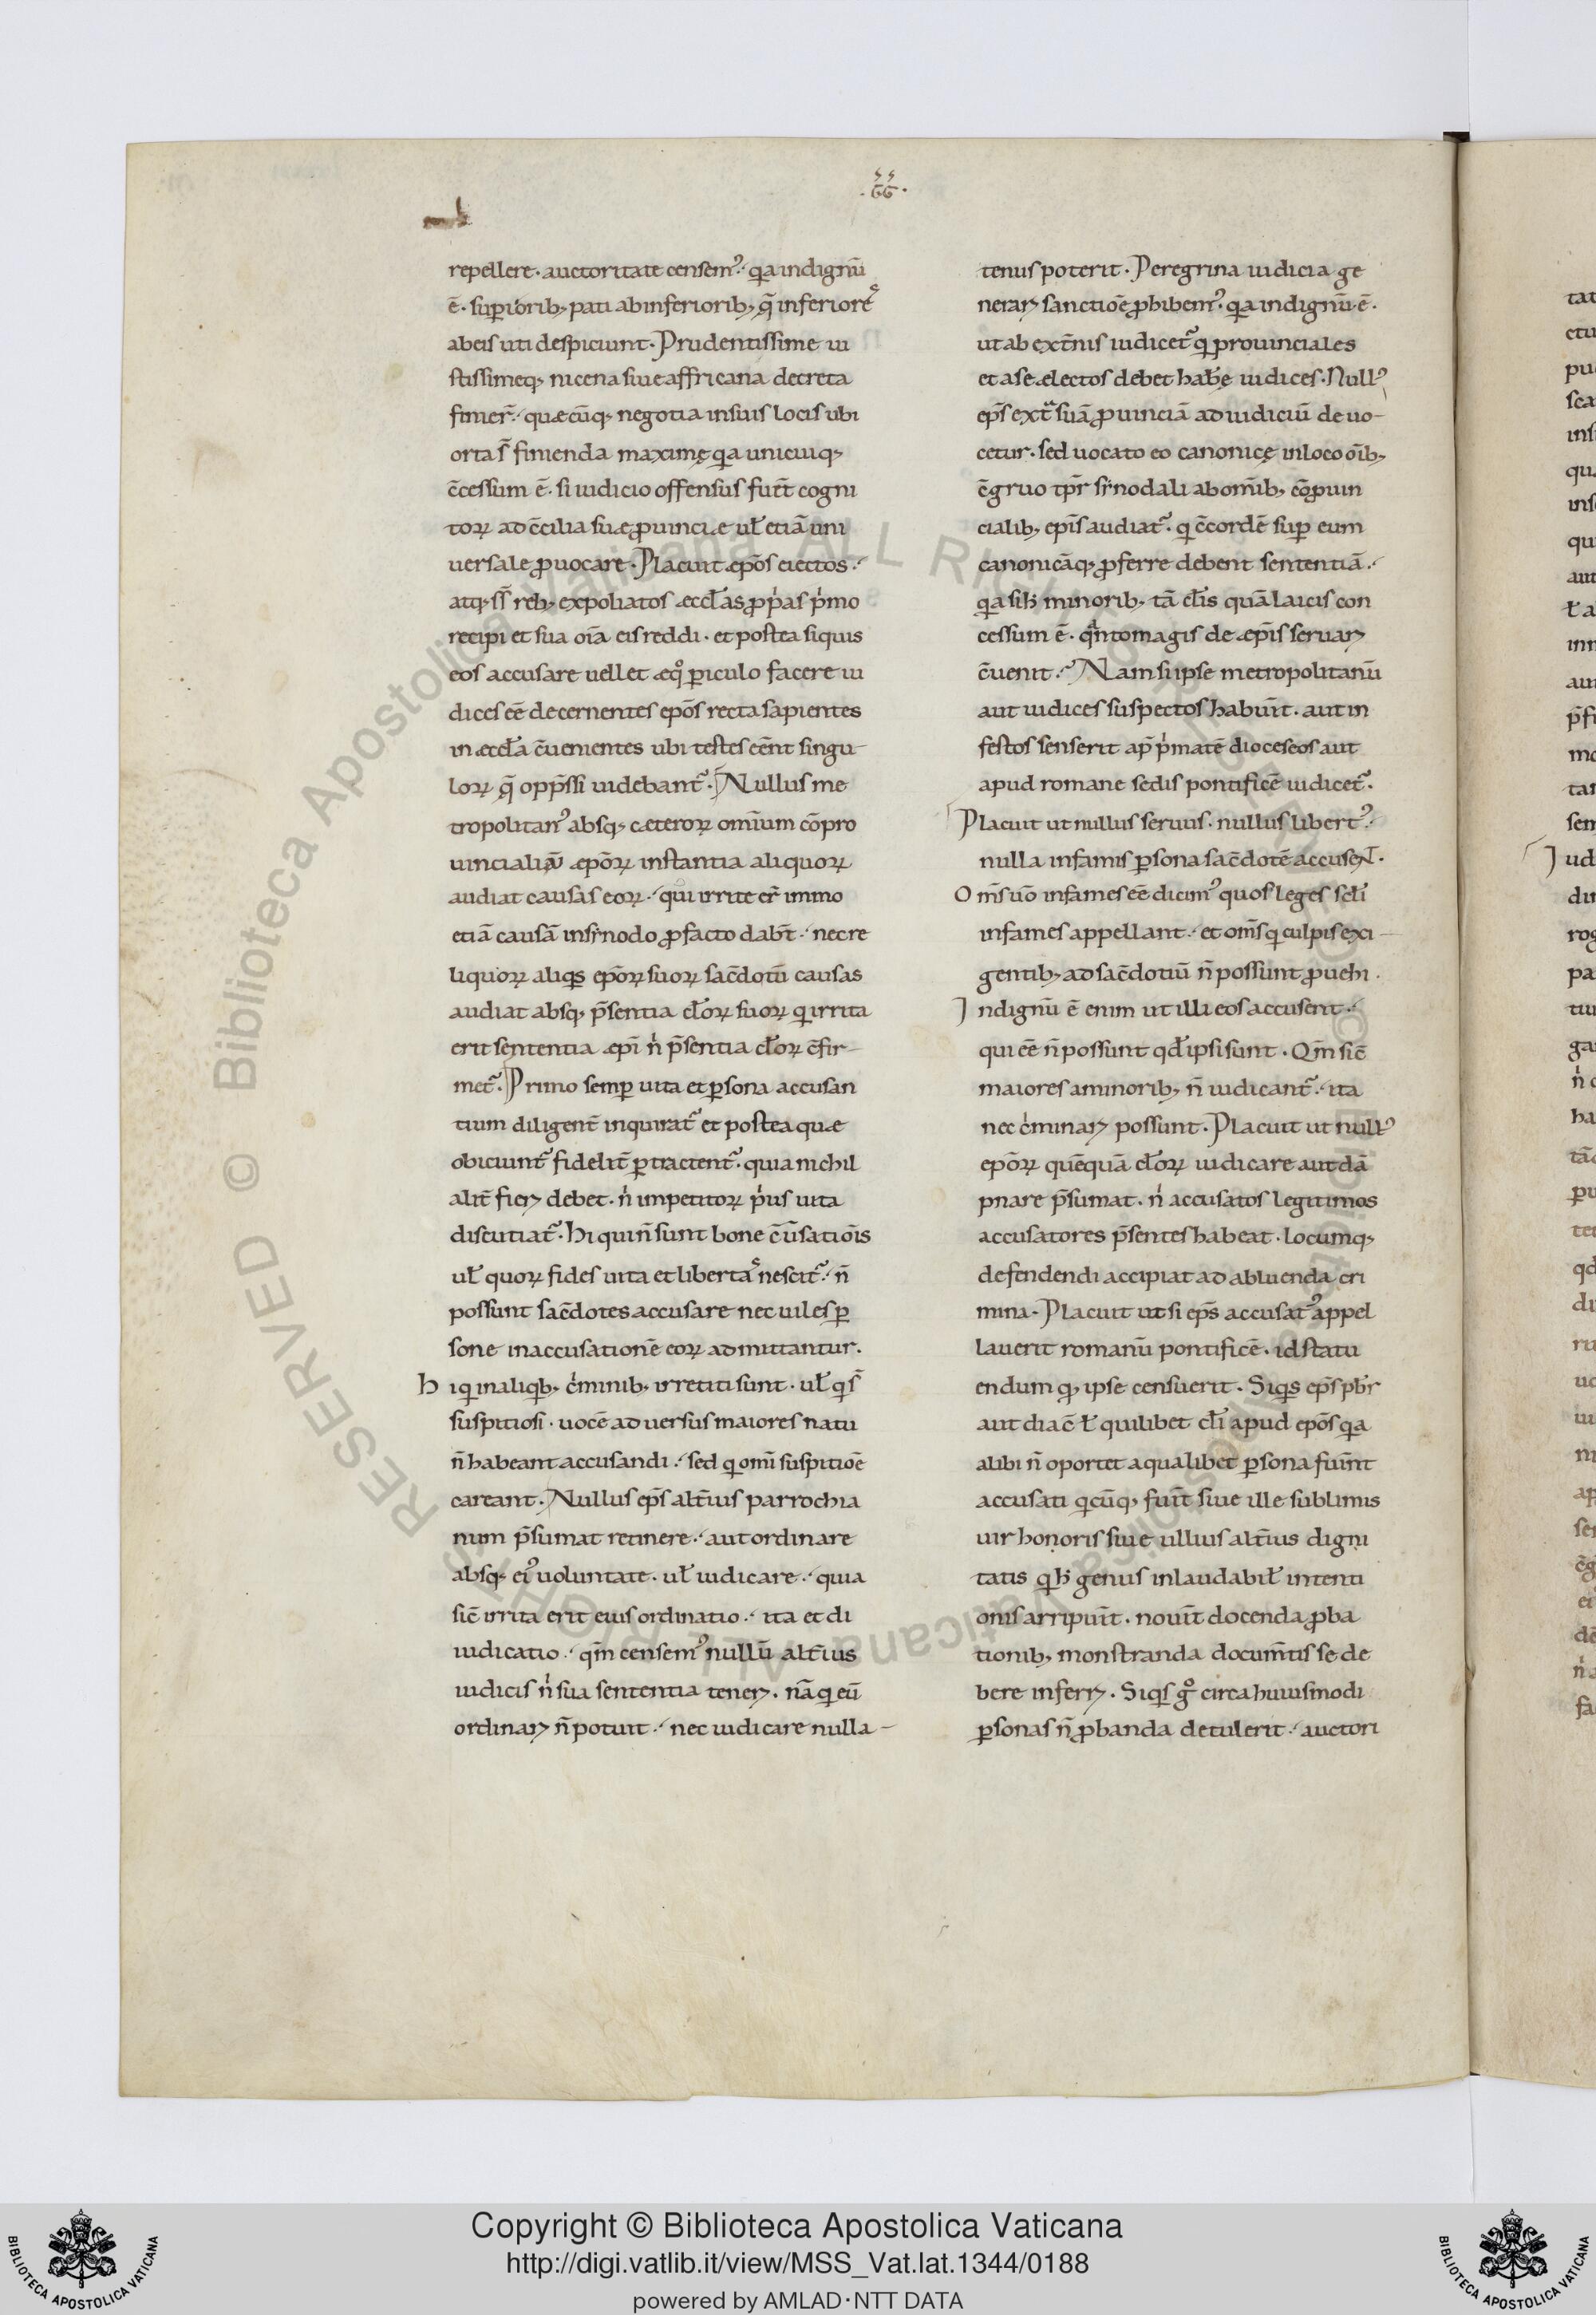 .ḠḠ.
repellere · auctoritate censem᾿ · q̄a indignū
ē · sup̄iorib; pati ab inferiorib; q̄ inferiore
ab eis uti despiciunt · Prudentissime iu
stissimeq; nicena siue affricana decreta
finier̄ · quæcūq; negotia in suis locis ubi
orta s̄ finienda maximę q̄a unicuiq;
c̄cessum ē · si iudicio offensus fuer̄t cogni
torꝝ ad c̄cilia suæ ꝓuinciæ ul̄ etiā uni
uersale ꝓuocare · Placuit æpōs eiectos ·
atq; sī reb; expoliatos æccl̄as ꝓp̄as p̄mo
recipi et sua oīa eis reddi · et postea siquis
eos accusare uellet æq̊ ꝑiculo facere iu
dices eē decernentes epōs recta sapientes
in æccl̄a c̄uenientes ubi testes eēnt singu
lorꝝ q̄ opp̄ssi uidebant᷑ · Nullus me
tropolitan᾿ absq; cæterorꝝ omīum cōpro
uincialiū æpōrꝝ instantia aliquorꝝ
audiat causas eorꝝ · qui irrite er̄t immo
etiā causā in synodo ꝓ facto dab̄t · nec re
liquorꝝ aliq̄s epōrꝝ suorꝝ sac̄dotū causas
audiat absq; p̄sentia cl̄orꝝ suorꝝ q̄ irrita
erit sententia æpī n̍ p̄sentia cl̄orꝝ c̄fir
met᷑ · Primo semꝑ uita et ꝑsona accusan
tium diligent̄ inquirat᷑ et postea quæ
obiciunt᷑ fidelit̄ ꝑtractent᷑ · quia nichil
alit̄ fierꝫ debet · n̍ impetitorꝝ p̍us uita
discutiat᷑ · Hi qui n̄ sunt bone c̄ūsatiōis
ul̄ quorꝝ fides uita et libertas nescit᷑ · n̄
possunt sac̄dotes accusare nec uiles ꝑ
sone in accusationē eorꝝ admittantur ·
Hi q̄ in aliq̄b; c̍minib; irretiti sunt · ul̄ q̄ s̄
suspitiosi · uocē aduersus maiores natu
n̄ habeant accusandi · sed q̄ omī suspitiōe
careant · Nullus ep̄s alt̄ius parrochia
num p̄sumat retinere · aut ordinare
absq; ei᾿ uoluntate · ul̄ iudicare · quia
sic̄ irrita erit eius ordinatio · ita et di
iudicatio · qm̄ censem᾿ nullū alt̄ius
iudicis n̍ sua sententia tenerꝫ · nā q̄ eū
ordinarꝫ n̄ potuit · nec iudicare nulla
tenus poterit · Peregrina iudicia ge
nerarꝫ sanctiōe ꝓhibem᾿ · q̄a indignū · ē ·
ut ab ext̄nis iudicet᷑ q̄ prouinciales
et a se ælectos debet hab̄ę iudices · Null᾿
ep̄s ext̄ suā ꝓuinciā ad iudiciū deuo
cetur · sed uocato eo canonicę in loco oīb;
c̄gruo tp̄r synodali ab om̄ib; cōꝓuin
cialib; epīs audiat᷑ · q̄ c̄cordē suꝑ eum
canonicāq; ꝓferre debent sententiā ·
q̄a si h̄ minorib; tā cl̄is quā laicis con
cessum ē · q̄ntomagis de æpīs seruarꝫ
c̄uenit · Nam si ipse metropolitanū
aut iudices suspectos habuīt · aut in
festos senserit ap̄ p̍matē dioceseos aut
apud romane sedis pontificē iudicet᷑ ·
Placuit ut nullus seruus · nullus libert᾿ ·
nulla infamis ꝑsona sac̄dotē accuset ·
Om̄s uō infames eē dicim᾿ quos leges scl̄i
infames appellant · et om̄s q̄ culpis exi
gentib; ad sac̄dotiū n̄ possunt ꝓuehi ·
Indignū ē enim ut illi eos accusent ·
qui eē n̄ possunt qd̄ ipsi sunt · Qm̄ sic̄
maiores a minorib; n̄ iudicant᷑ · ita
nec c̍minarꝫ possunt · Placuit ut null᾿
epōrꝝ quēquā cl̄orꝝ iudicare aut dā
pnare p̄sumat · n̍ accusatos legitimos
accusatores p̄sentes habeat · locumq;
defendendi accipiat ad abluenda cri
mina · Placuit ut si ep̄s accusat᾿ appel
lauerit romanū pontificē · id statu
endum q̄ ipse censuerit · Siq̄s ep̄s pb̄r
aut diac̄ ł quilibet cl̄i apud epōs q̄a
alibi n̄ oportet a qualibet ꝑsona fuīnt
accusati q̄cūq; fuīt siue ille sublimis
uir honoris siue ullius alt̄ius digni
tatis q̄ h̄ genus inlaudabil̄ intenti
onis arripuīt · nouīt docenda ꝓba
tionib; monstranda docum̄tis se de
bere inferrꝫ · Siq̄s g̊ circa huiusmodi
ꝑsonas n̄ ꝓbanda detulerit · auctori
Copyright © Biblioteca Apostolica Vaticana
http://digi.vatlib.it/view/MSS_Vat.lat.1344/0188
powered by AMLAD·NTT DATA
BIBLIOTECA APOSTOLICA VATICANA
BIBLIOTECA APOSTOLICA VATICANA